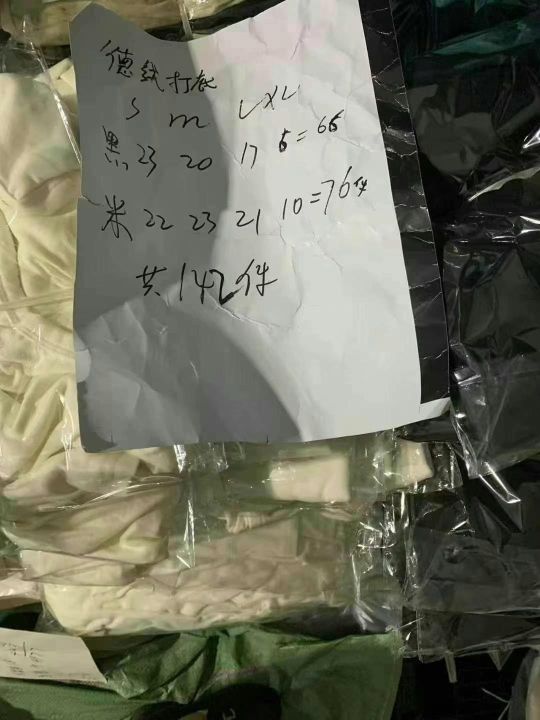 德绒打底
S m L XL
黑 23 20 17 6=66
米 22 23 21 10=76件
共142件